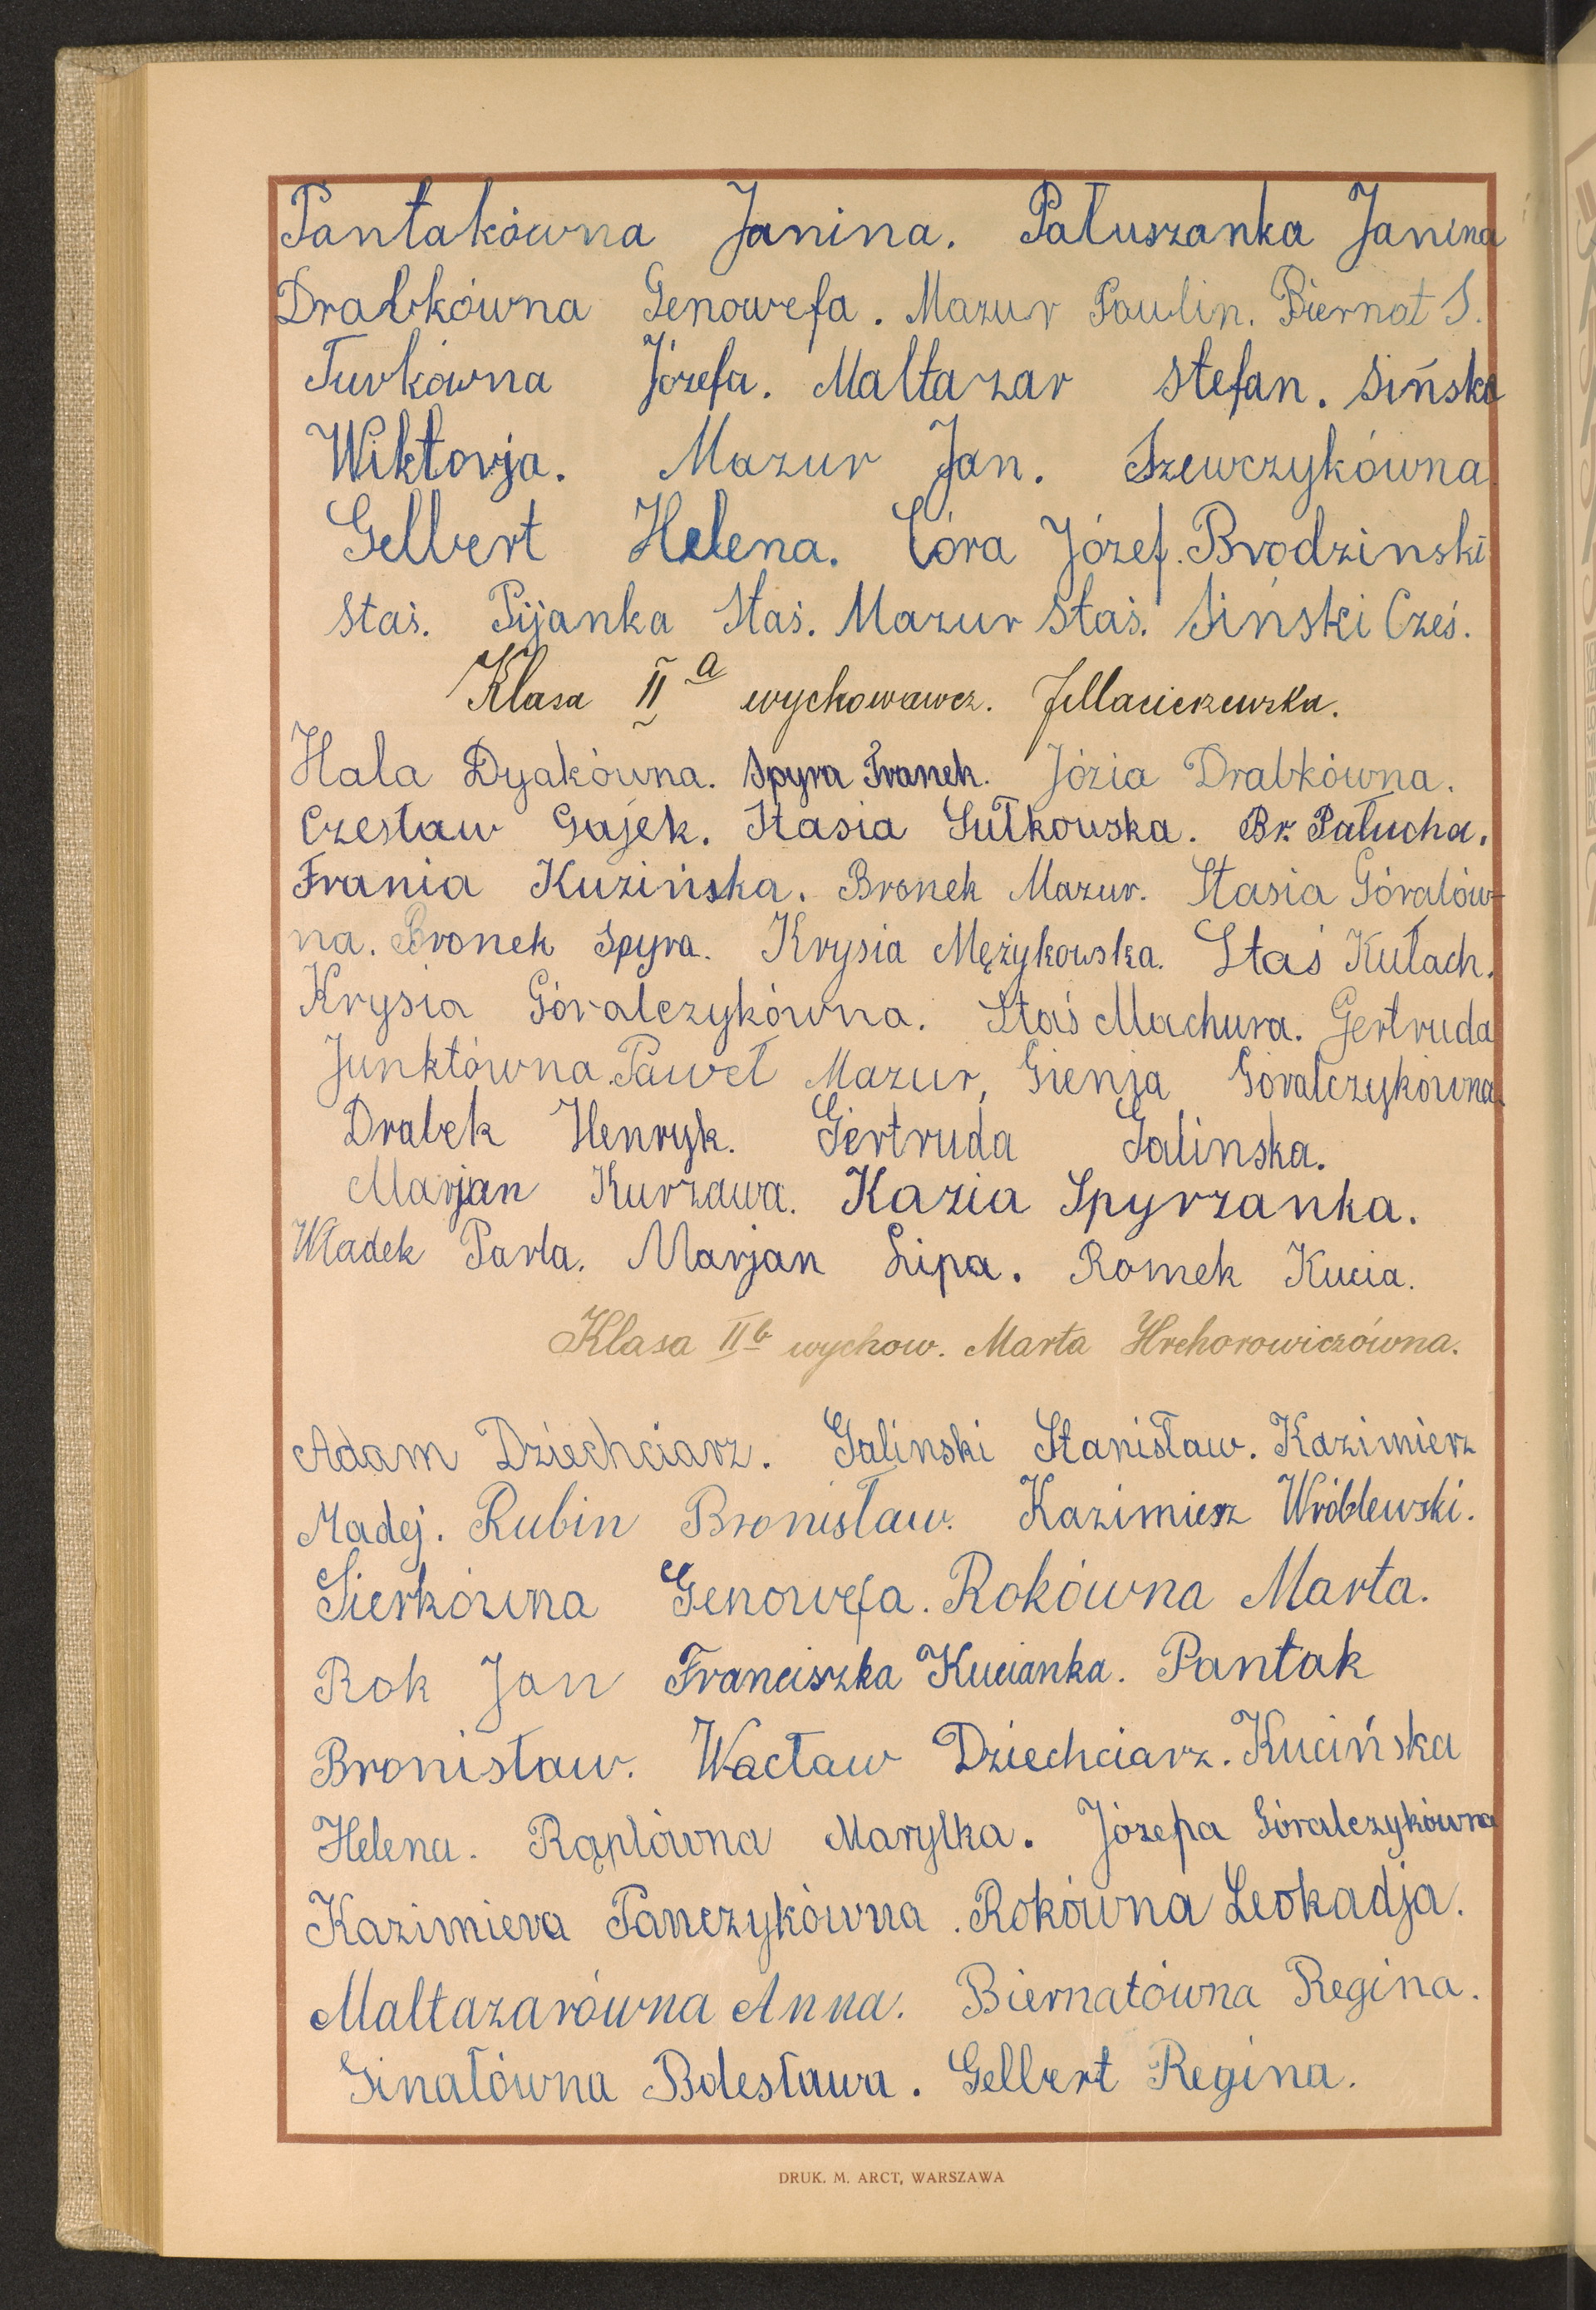 Pantakówna Janina. Pałuszanka Janina
Drabkówna Genowefa. Mazur Paulin. Biernat S.
Turkówna Józefa. Małtazar Stefan. Sińska
Wiktorja. Mazur Jan. Szewczykówna
Gelbert Helena. Córa Józef. Brodzinski
Staś. Pijanka Staś. Mazur Staś. Siński Cześ.
Klasa II a wychowawcz. J. Maciejewska.
Hala Dyakówna. Spyra Franek. Józia Drabkówna.
Czesław Gajek. Stasia Sułkowska. Br. Pałucha.
Frania Kuzińska. Bronek Mazur. Stasia Góralów-
na. Bronek Spyra. Krysia Mężykowska. Staś Kułach.
Krysia Góralczykówna. Staś Machura. Gertruda
Junktówna. Paweł Mazur, Gienja Góralczykówna.
Drabek Henryk. Giertruda Galinska.
Marjan Kurzawa. Kazia Spyrzanka.
Władek Parla. Marjan Lipa. Romek Kucia.
Klasa II b wychow. Marta Hrehorowiczówna.
Adam Dziechciarz. Galinski Stanisław. Kazimierz
Madej. Rubin Bronisław. Kazimierz Wróblewski.
Sierkówna Genowefa. Rokówna Marta.
Rok Jan Franciszka Kucianka. Pantak
Bronisław. Wacław Dziechciarz. Kucińska
Helena. Rąplówna Marylka. Józefa Góralczykówna
Kazimiera Panczykówna. Rokówna Leokadja.
Małtazarówna Anna. Biernatówna Regina.
Ginałówna Bolesława. Gelbert Regina.
DRUK. M. ARCT, WARSZAWA